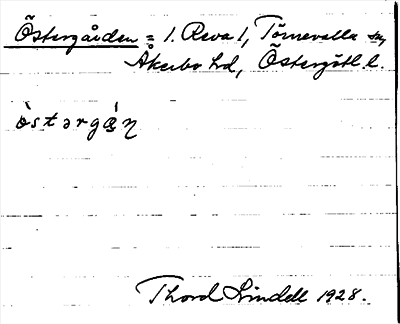 Östergården = 1. Reva 1, Törnevalla sn,
Åkerbo hd, Östergötl. l.
ò̀stərgá̱ṇ
Thord Lindell 1928.